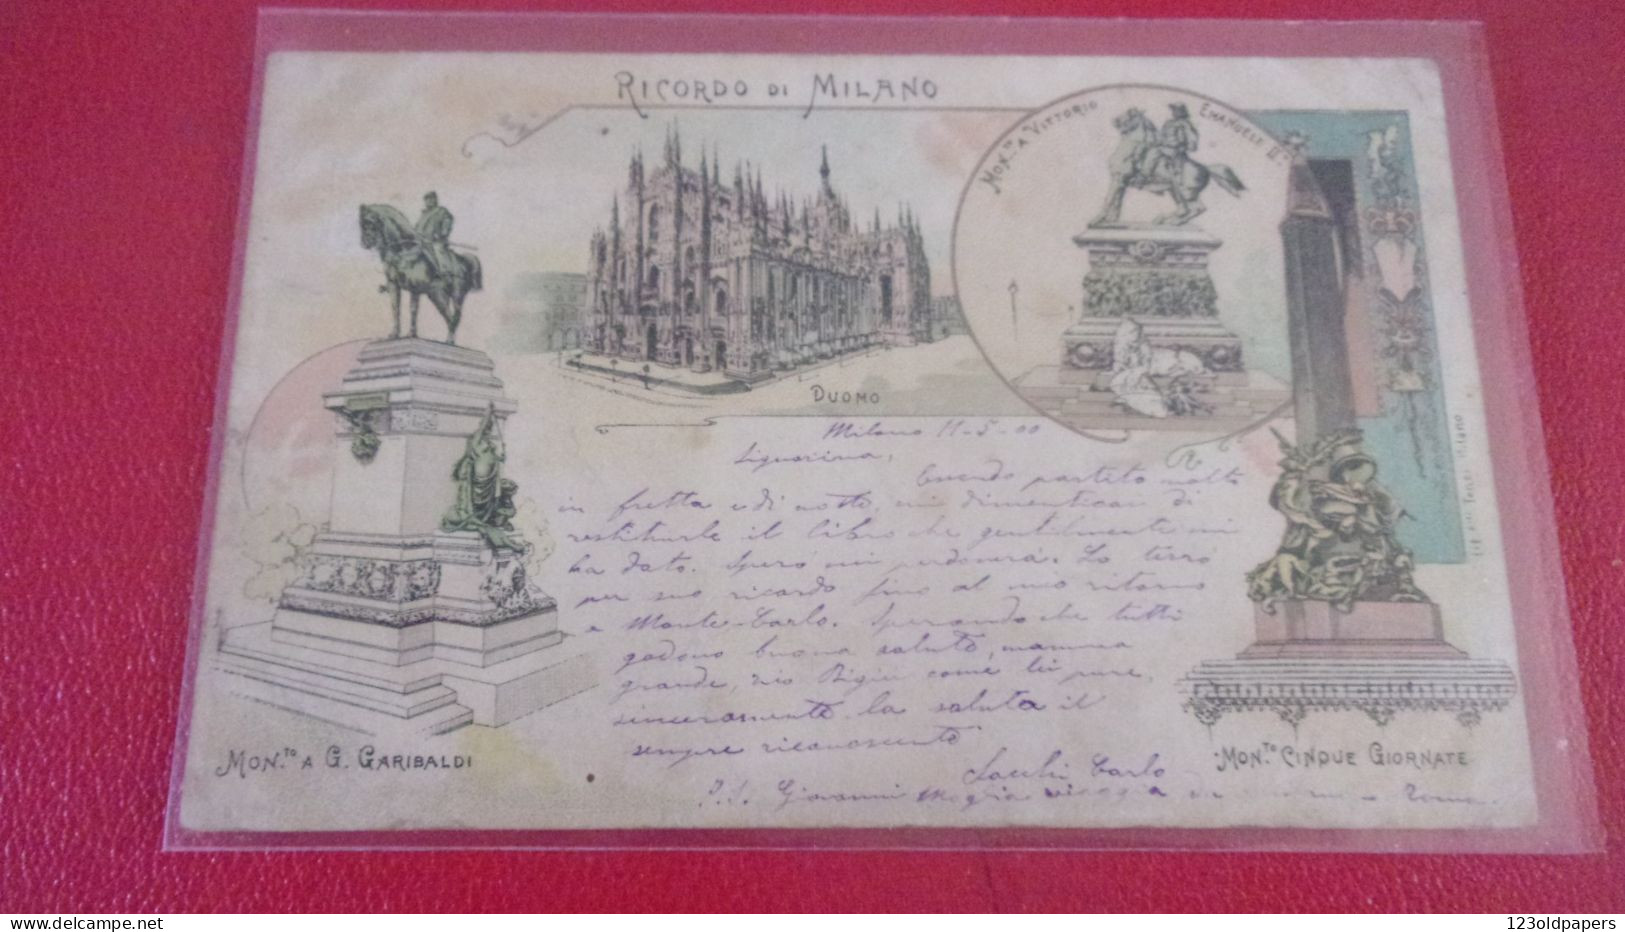 RICORDO DI MILANO
MON.TO A VITTORIO EMANUELE II.
DUOMO
Milano 11-5-00
Signorina,
Essendo partito molto
in fretta e di notte, mi dimenticai di
restituirle il libro che gentilmente mi
ha dato. Spero mi perdonerà. Lo terrò
per suo ricordo fino al mio ritorno
a Monte-Carlo. Sperando che tutti
godono buona salute, mamma
grande, zio Bigin come lei pure,
sinceramente la saluta il
sempre riconoscente
Sacchi Carlo
P.S. Giovanni moglie Roma.
MON.TO A G. GARIBALDI
MON.TO CINQUE GIORNATE
Milano
123oldpapers